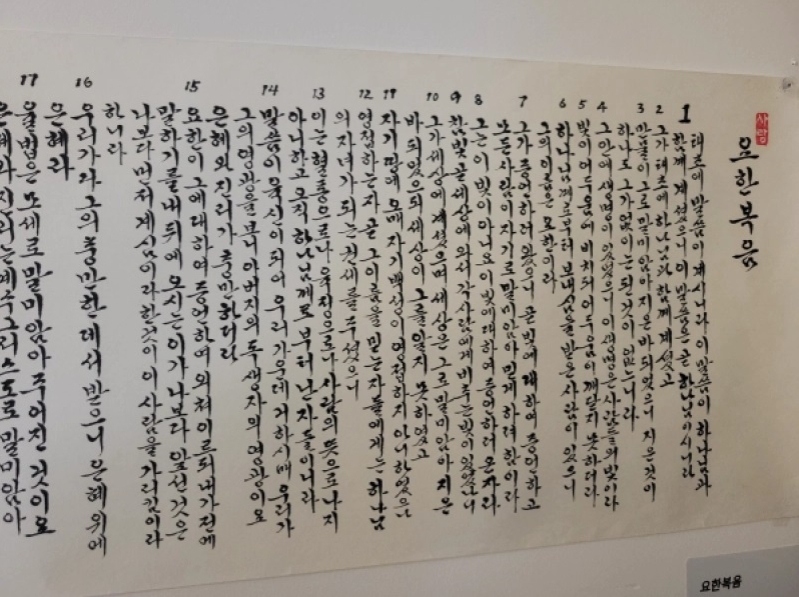 사랑
요한복음
1 태초에 말씀이 계시니라 이 말씀이 하나님과
함께 계셨으니 이 말씀은 곧 하나님이시니라
2 그가 태초에 하나님과 함께 계셨고
3 만물이 그로 말미암아 지은 바 되었으니 지은 것이
하나도 그가 없이는 된 것이 없느니라
4 그 안에 생명이 있었으니 이 생명은 사람들의 빛이라
5 빛이 어두움에 비치되 어두움이 깨닫지 못하더라
6 하나님께로부터 보내심을 받은 사람이 있으니
그의 이름은 요한이라
7 그가 증언하러 왔으니 곧 빛에 대하여 증언하고
모든 사람이 자기로 말미암아 믿게 하려 함이라
8 그는 이 빛이 아니요 이 빛에 대하여 증언하러 온 자라
9 참 빛 곧 세상에 와서 각 사람에게 비추는 빛이 있었나니
10 그가 세상에 계셨으며 세상은 그로 말미암아 지은
바 되었으되 세상이 그를 알지 못하였고
11 자기 땅에 오매 자기 백성이 영접하지 아니하였으나
12 영접하는 자 곧 그의 이름을 믿는 자들에게는 하나님
의 자녀가 되는 권세를 주셨으니
13 이는 혈통으로나 육정으로나 사람의 뜻으로 나지
아니하고 오직 하나님께로부터 난 자들이니라
14 말씀이 육신이 되어 우리 가운데 거하시매 우리가
그의 영광을 보니 아버지의 독생자의 영광이요
은혜와 진리가 충만하더라
15 요한이 그에 대하여 증언하여 외쳐 이르되 내가 전에
말하기를 내 뒤에 오시는 이가 나보다 앞선 것은
나보다 먼저 계심이라 한 것이 이 사람을 가리킴이라
하니라
16 우리가 다 그의 충만한 데서 받으니 은혜 위에
은혜라
17 율법은 모세로 말미암아 주어진 것이요
은혜와 진리는 예수 그리스도로 말미암아
요한복음